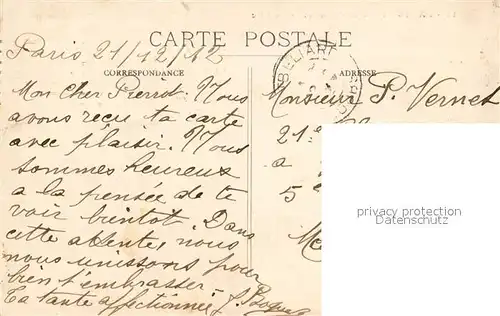 CARTE POSTALE
Paris 21/12/12
CORRESPONDANCE
ADRESSE
Mon cher Pierrot. Nous
avons reçu ta carte
avec plaisir. Nous
sommes heureux
a la pensée de te
voir bientot. Dans
cette attente, nous
nous unissons pour
bien t'embrasser
Ta tante affectionnée
Monsieur P. Vernet
21
a
5
privacy protection
Datenschutz